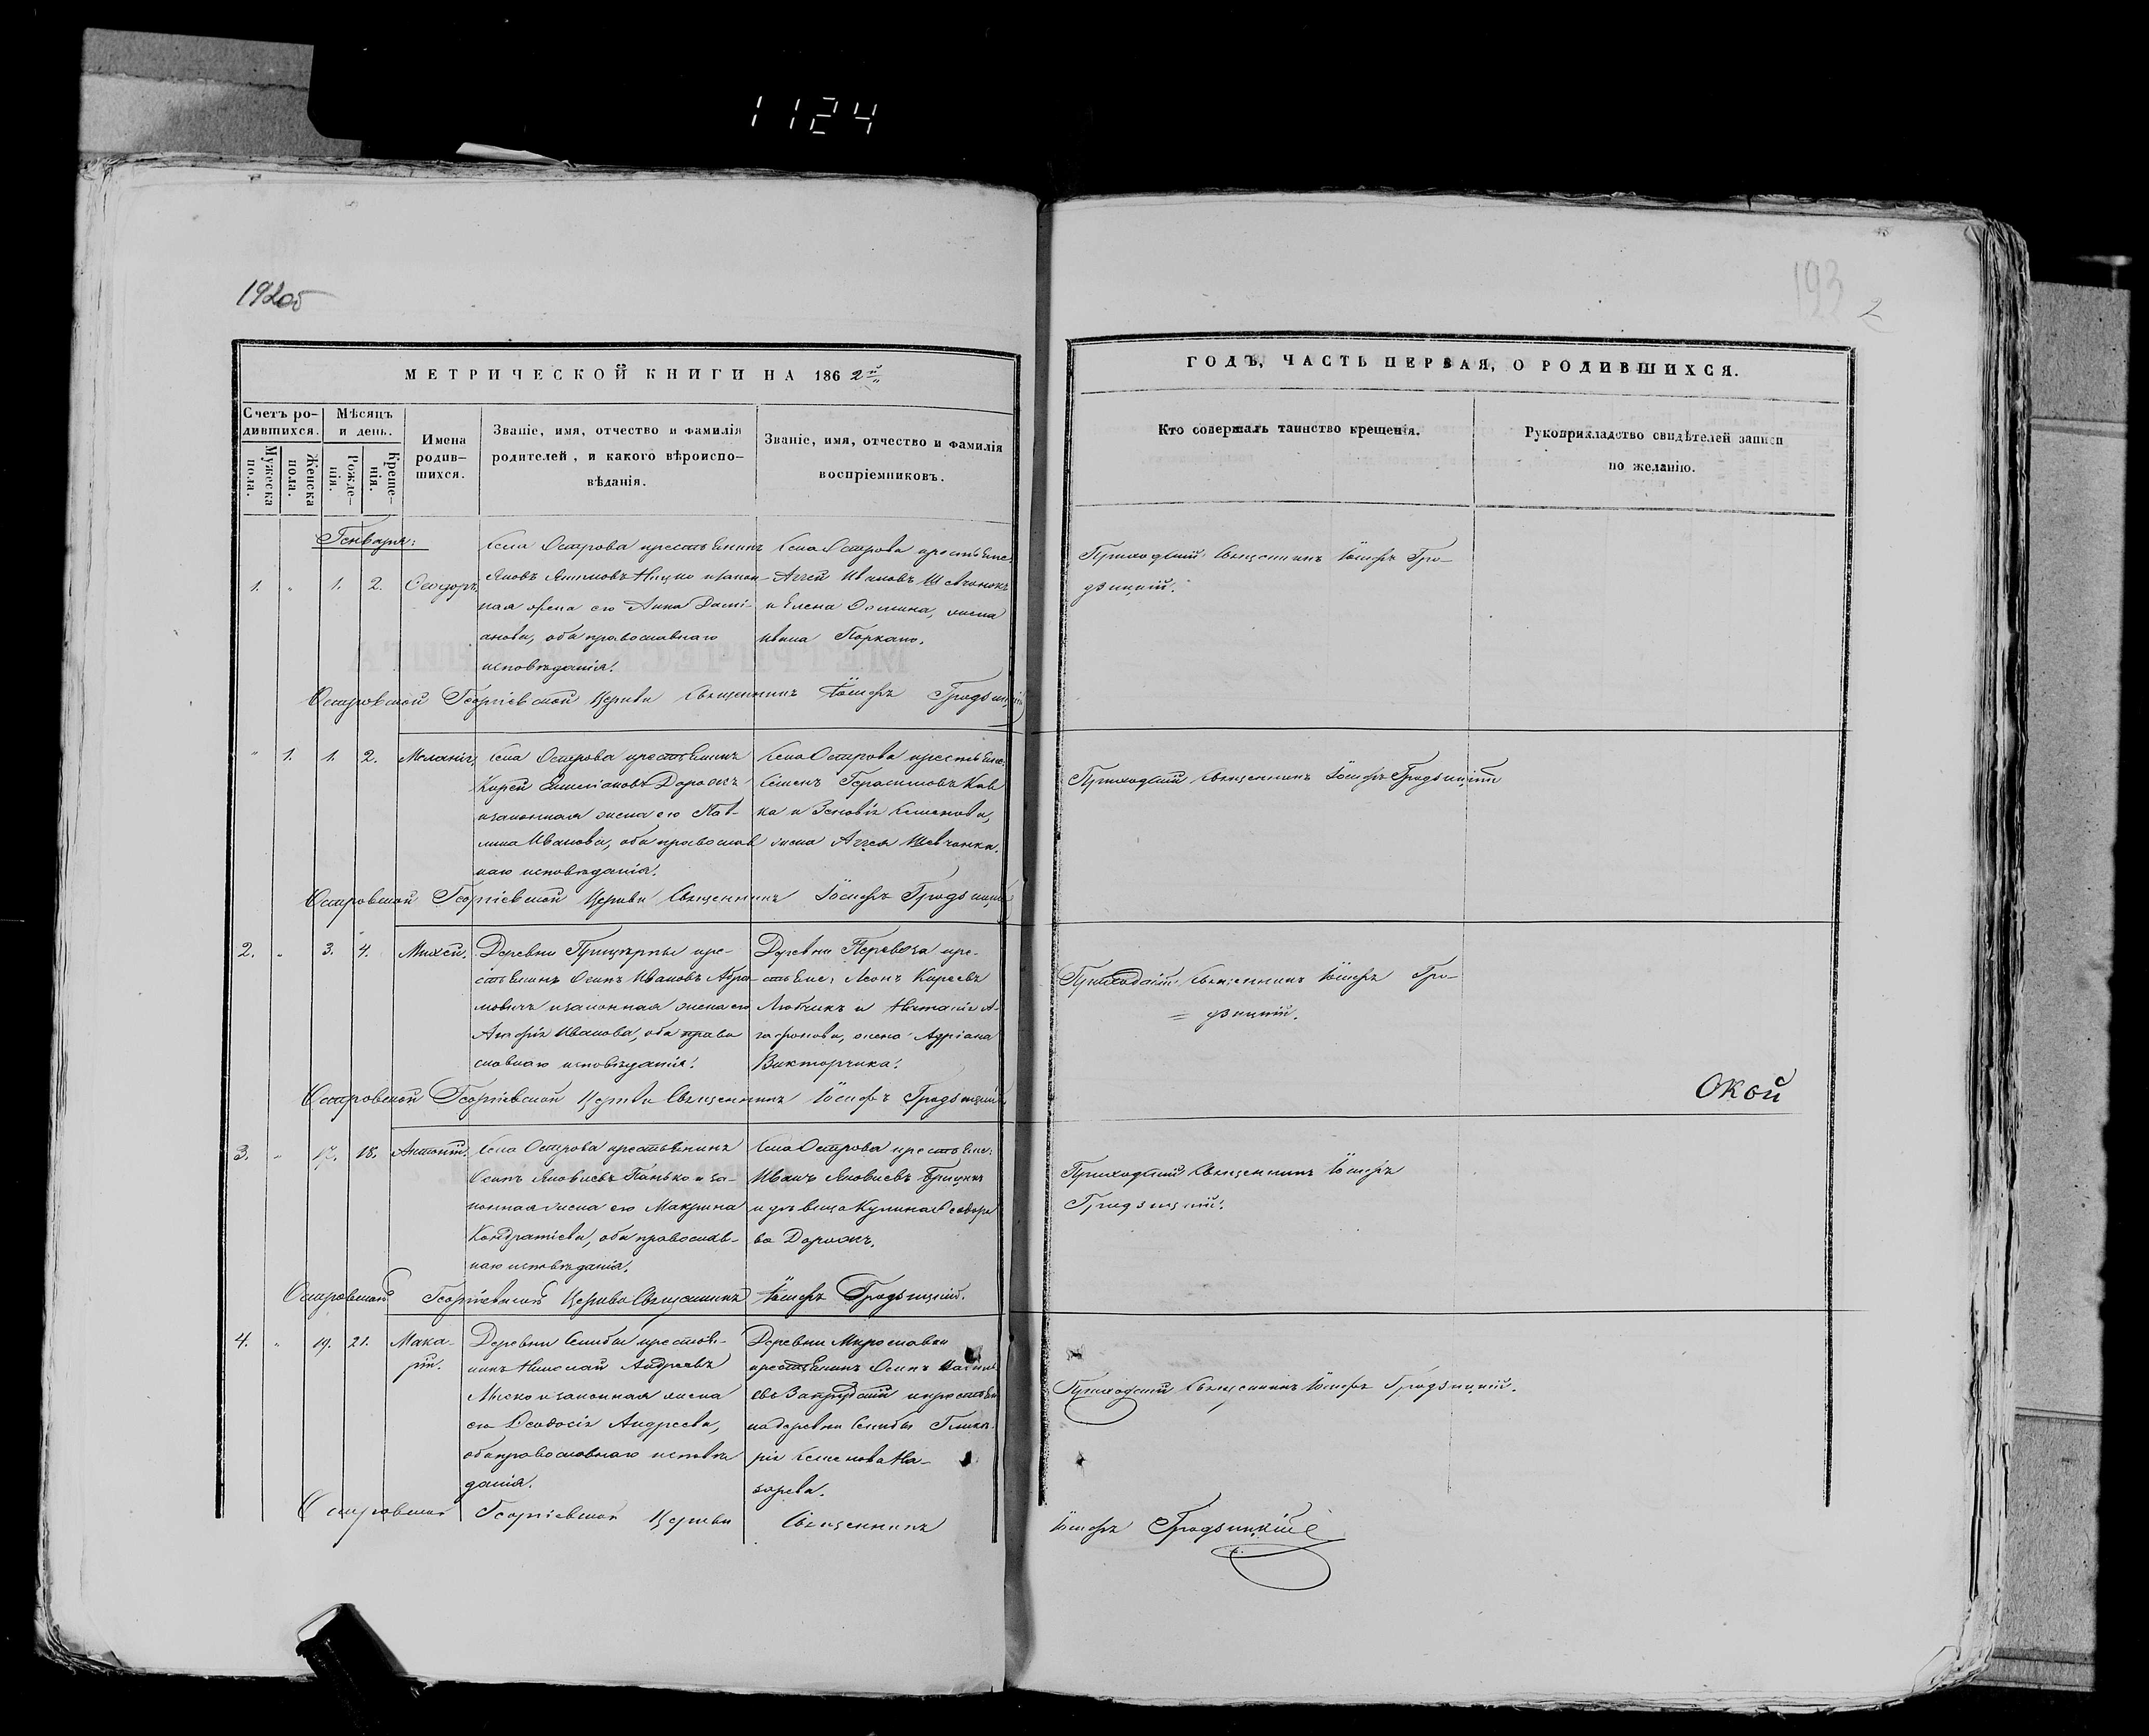 1124
192об
193
2
МЕТРИЧЕСКОЙ КНИГИ НА 1862й
ГОДЪ, ЧАСТЬ ПЕРВАЯ, О РОДИВШИХСЯ.
Счетъ ро-
дившихся.
Мужеска
пола.
Женска
пола.
Мѣсяцъ
и день.
Рожде-
нія.
Креще-
нія.
Имена
родив-
шихся.
Званіе, имя, отчество и фамилія
родителей, и какого вѣроиспо-
вѣданія.
Званіе, имя, отчество и фамилія
воспріемниковъ.
Кто совершалъ таинство крещенія.
Рукоприкладство свидѣтелей записи
по желанію.
Генваря:
1. " 1. 2. Ѳеодоръ.
Села Острова крестьянинъ
Яковъ Якимовъ и закон-
ная жена его Анна Дамі-
анова, оба православнаго
исповѣданія.
Села Острова крестьяне:
Аггей Ивановъ Шевчонокъ
и Елена Фомина, жена
Ивана
Приходскій Священникъ Іосифъ Гро-
дзицкій.
Островской Георгіевской Церкви Священникъ Іосифъ Гродзицкій
" 1. 1. 2. Меланія,
Села Острова крестьянинъ
Карпъ Дорожъ
и законная жена его Пав-
лина Иванова, оба православ
наго исповѣданія.
Села Острова крестьяне:
Семенъ Герасимовъ Кав
ка и Зеновія Семенова,
жена Аггея Шевчонка.
Приходскій Священникъ Іосифъ Гродзицкій
Островской Георгіевской Церкви Священникъ Іосифъ Гродзицкій
2. " 3. 4. Михей.
Деревни кре-
стьянинъ Осипъ Ивановъ Абра-
мовичъ и законная жена его
Иванова, оба право
славнаго исповѣданія.
Деревни Перевоза кре-
стьяне: Леонъ Киреевъ
Любчикъ и Наталія А-
гафонова, жена Адріана
Викторчика.
Приходскій Священникъ Іосифъ Гро-
= дзицкій.
Окой
Островской Георгіевской Церкви Священникъ Іосифъ Гродзицкій
3. " 17. 18. Антоній.
Села Острова крестьянинъ
Осипъ Яковлевъ Панько и за-
конная жена его Макрина
Кондратіева, оба православ-
наго исповѣданія.
Села Острова крестьяне:
Иванъ Яковлевъ
и дѣвица Кулина Ѳеодоро
ва Дорожъ.
Приходскій Священникъ Іосифъ
Гродзицкій.
Островской Георгіевской Церкви Священникъ Іосифъ Гродзицкій.
4. " 19. 21. Мака-
рій.
Деревни Селибы крестья-
нинъ Николай Андреевъ
и законная жена
его Ѳеодосія Андреева,
оба православнаго исповѣ
данія.
Деревни Мирославки
крестьянинъ Осипъ
евъ и крестьян
ка деревни Селибы Глике-
рія Семенова На-
зарева.
Приходскій Священникъ Іосифъ Гродзицкій.
Островской Георгіевской Церкви Священникъ Іосифъ Гродзицкій